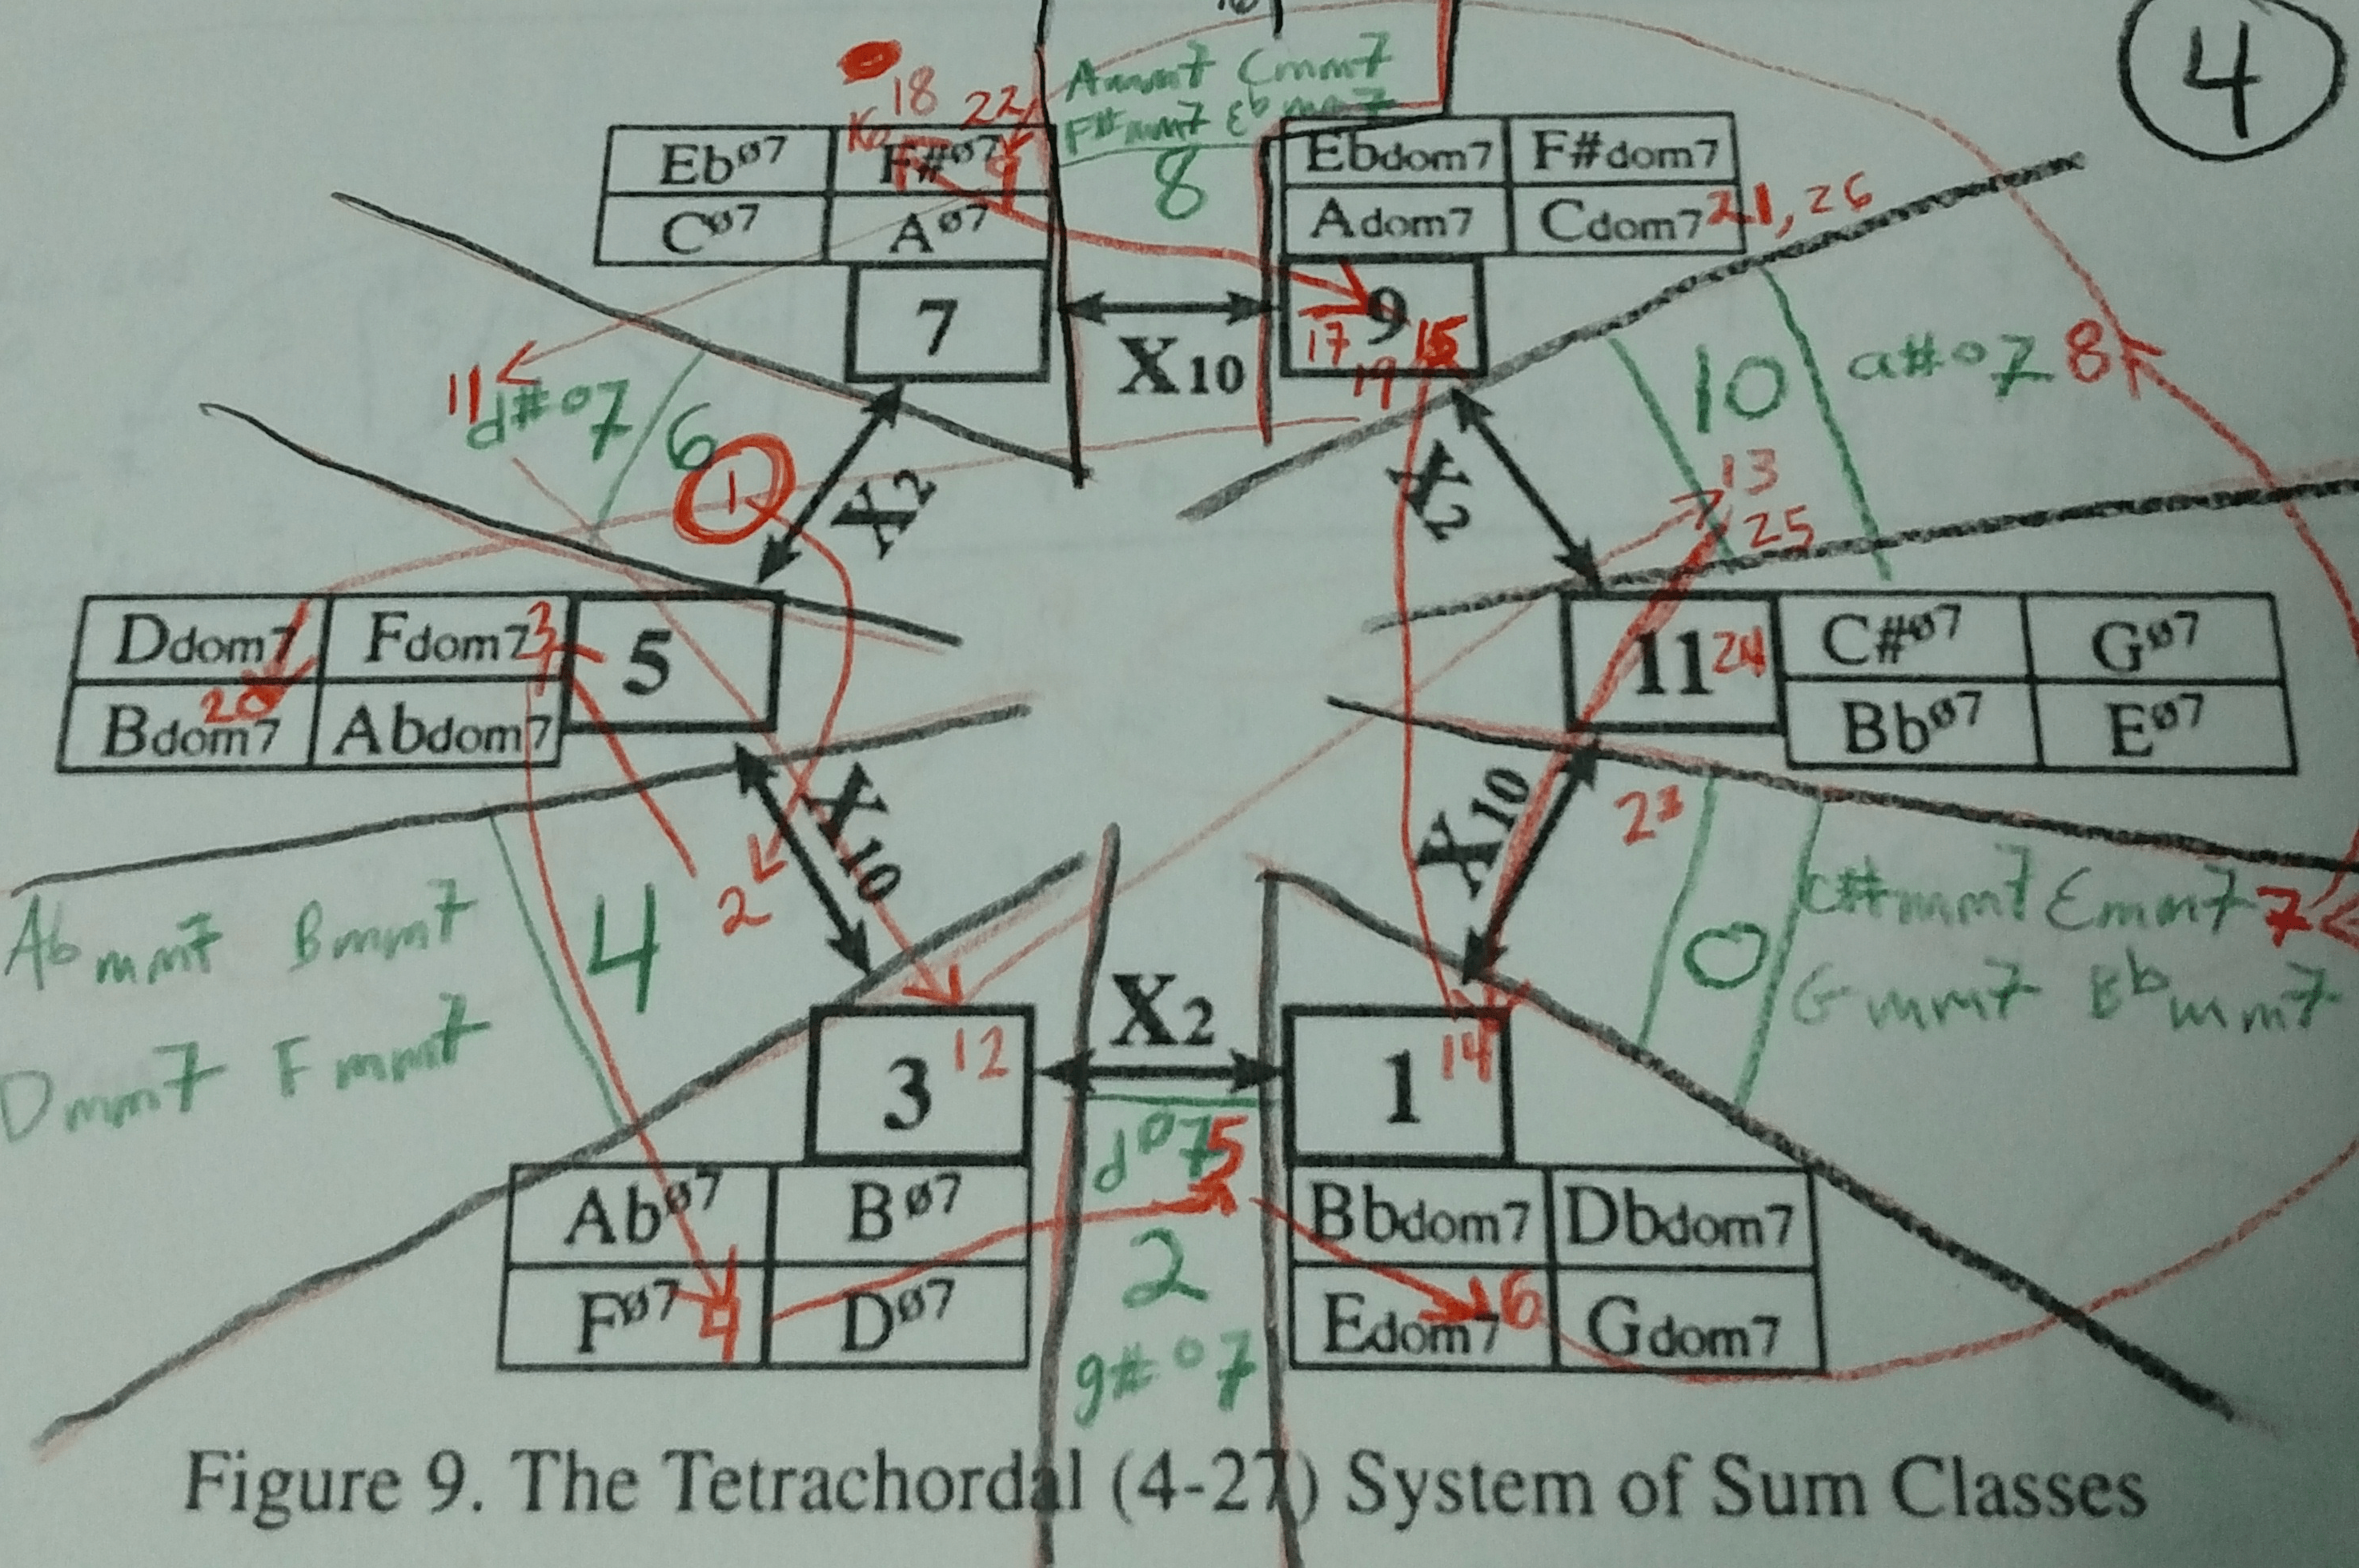 4
18 22
Ammm7 Cmm7
F#mm7 Ebmm7
8
Ebø7 F#ø7
Cø7 Aø7
7
Ebdom7 F#dom7
Adom7 Cdom7 21, 26
9
17 19 15
X10
11 d#o7 6
1
X2
X2
10 a#o7 8
13
25
Ddom7 Fdom7 3
20
Bdom7 Abdom7
5
11 24
C#ø7 Gø7
Bbø7 Eø7
X10
X10
Abmm7 Bmm7
Dmm7 Fmm7
4
2
0
c#mm7 Emm7 7
Gmm7 Bbmm7
X2
3 12
1 14
dø7 5
2
g#o7
Abø7 Bø7
Fø7 4 Dø7
Bbdom7 Dbdom7
Edom7 6 Gdom7
Figure 9. The Tetrachordal (4-27) System of Sum Classes